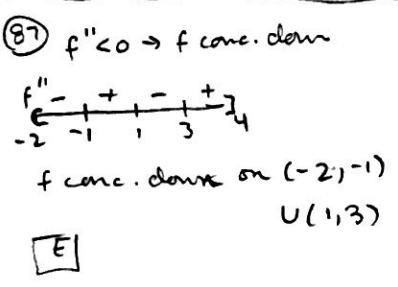 87 f"<0 → f conc. down
f" - + - +
-2 -1 1 3 4
f conc. down on (-2,-1)
U(1,3)
E